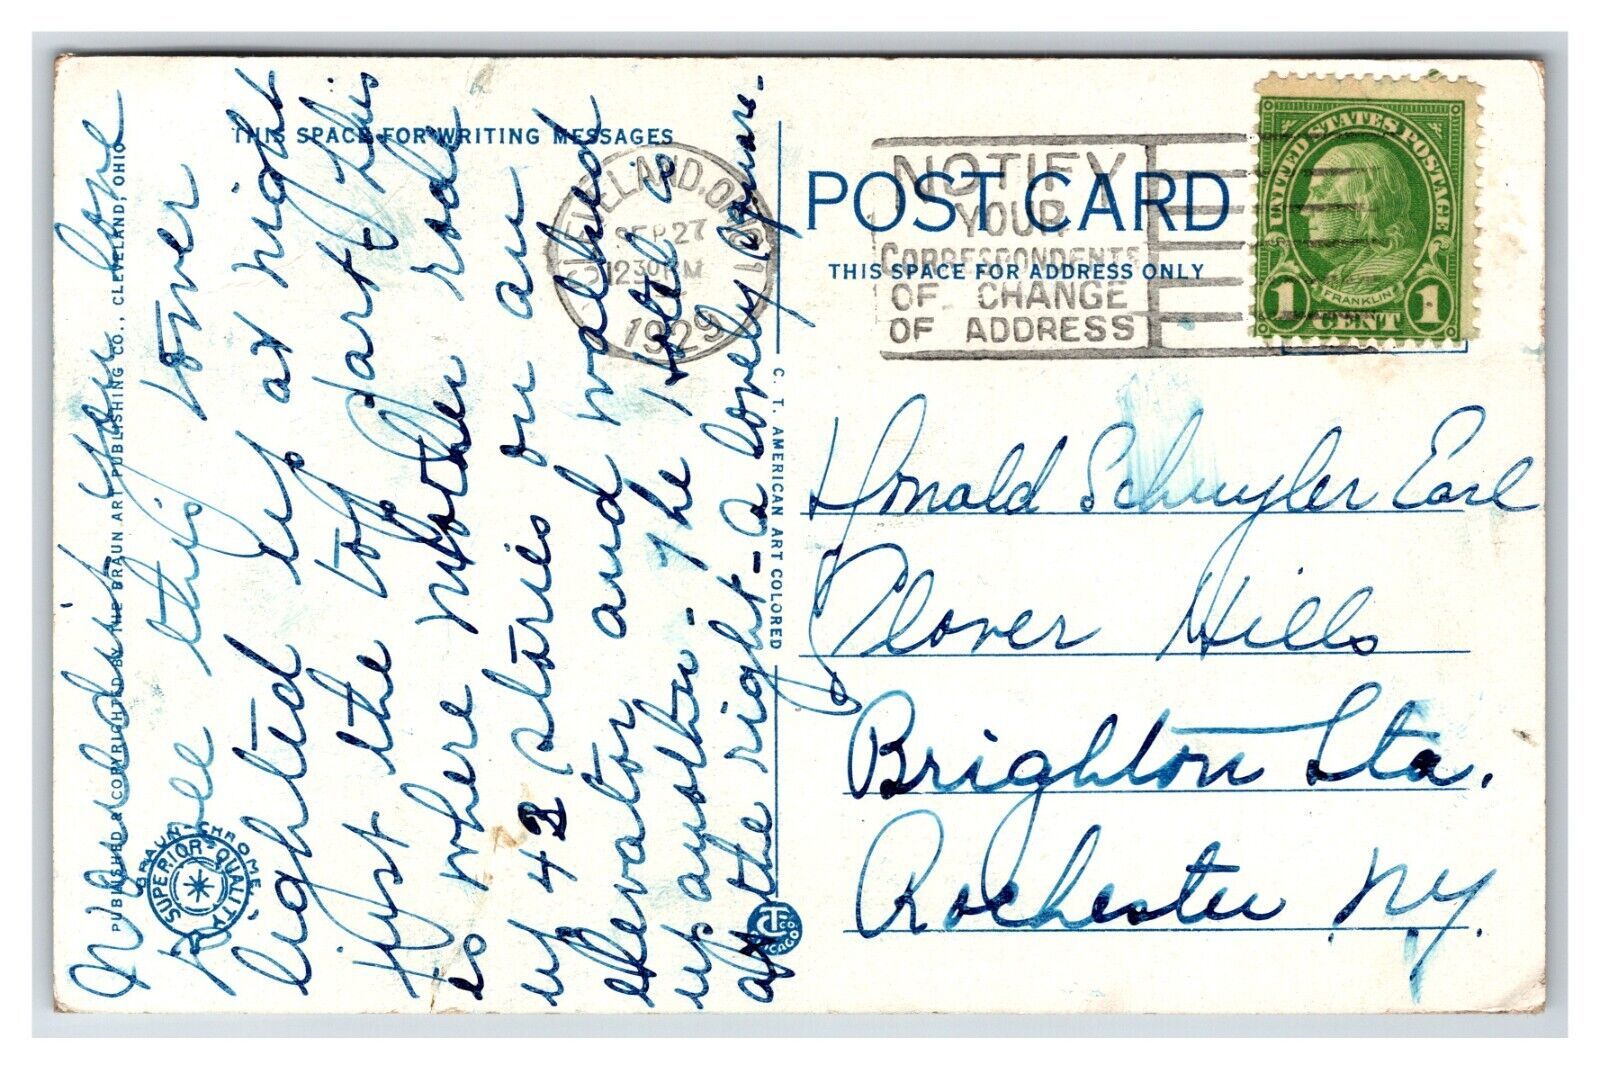 THIS SPACE FOR WRITING MESSAGES
POST CARD
THIS SPACE FOR ADDRESS ONLY
CLEVELAND, OHIO
SEP 27
12 30 PM
1929
NOTIFY
YOUR
CORRESPONDENTS
OF CHANGE
OF ADDRESS
UNITED STATES POSTAGE
FRANKLIN
1 CENT 1
you love
to see this tower
lighted up at night
Just the top part this
is where Mother rode
up 42 stories on an
elevator and walked
up another - The Hotel is
at the right - a lovely square.
Donald Schuyler Earl
Clover Hills
Brighton Sta.
Rochester N.Y.
PUBLISHED & COPYRIGHTED BY THE BRAUN ART PUBLISHING CO., CLEVELAND, OHIO
BRAUN-CHROME
SUPERIOR QUALITY
C. T. AMERICAN ART COLORED
CHICAGO